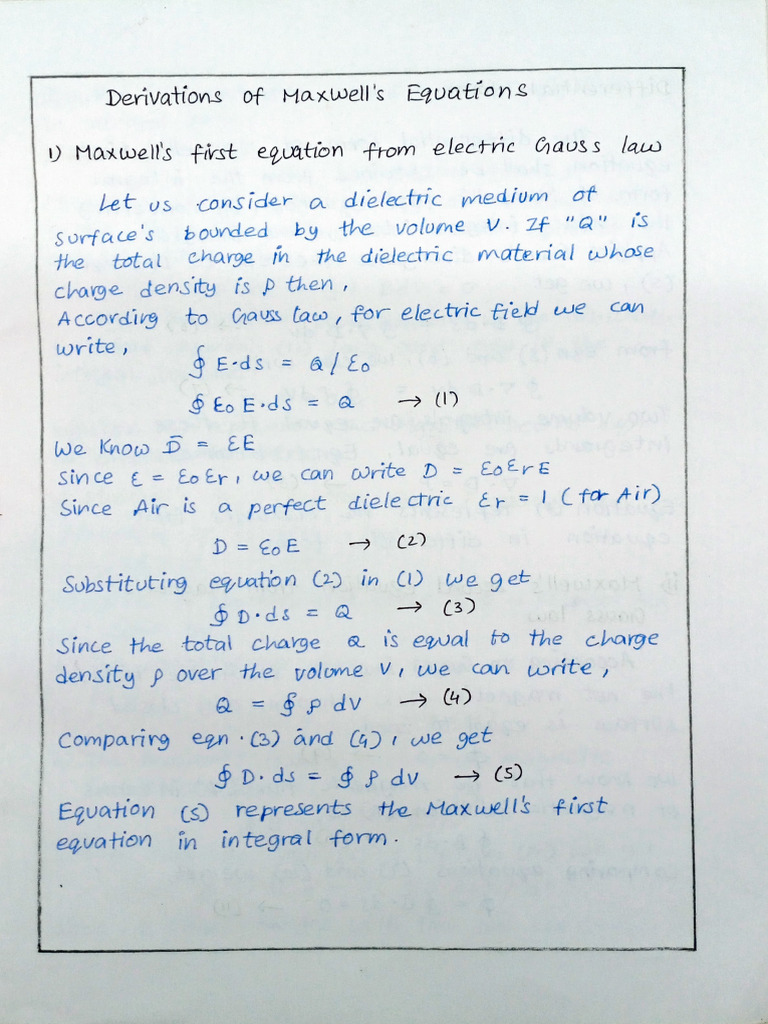 Derivations of Maxwell's Equations
1) Maxwell's first equation from electric Gauss law
Let us consider a dielectric medium of
surface's bounded by the volume V. If "Q" is
the total charge in the dielectric material whose
charge density is ρ then,
According to Gauss law, for electric field we can
write,
∮ E·ds = Q / ε0
∮ ε0 E·ds = Q → (1)
We know D̄ = εE
since ε = ε0εr, we can write D = ε0εrE
Since Air is a perfect dielectric εr = 1 (for Air)
D = ε0E → (2)
Substituting equation (2) in (1) we get
∮ D·ds = Q → (3)
Since the total charge Q is equal to the charge
density ρ over the volume V, we can write,
Q = ∮ ρ dv → (4)
Comparing eqn.(3) and (4), we get
∮ D·ds = ∮ ρ dv → (5)
Equation (5) represents the Maxwell's first
equation in integral form.